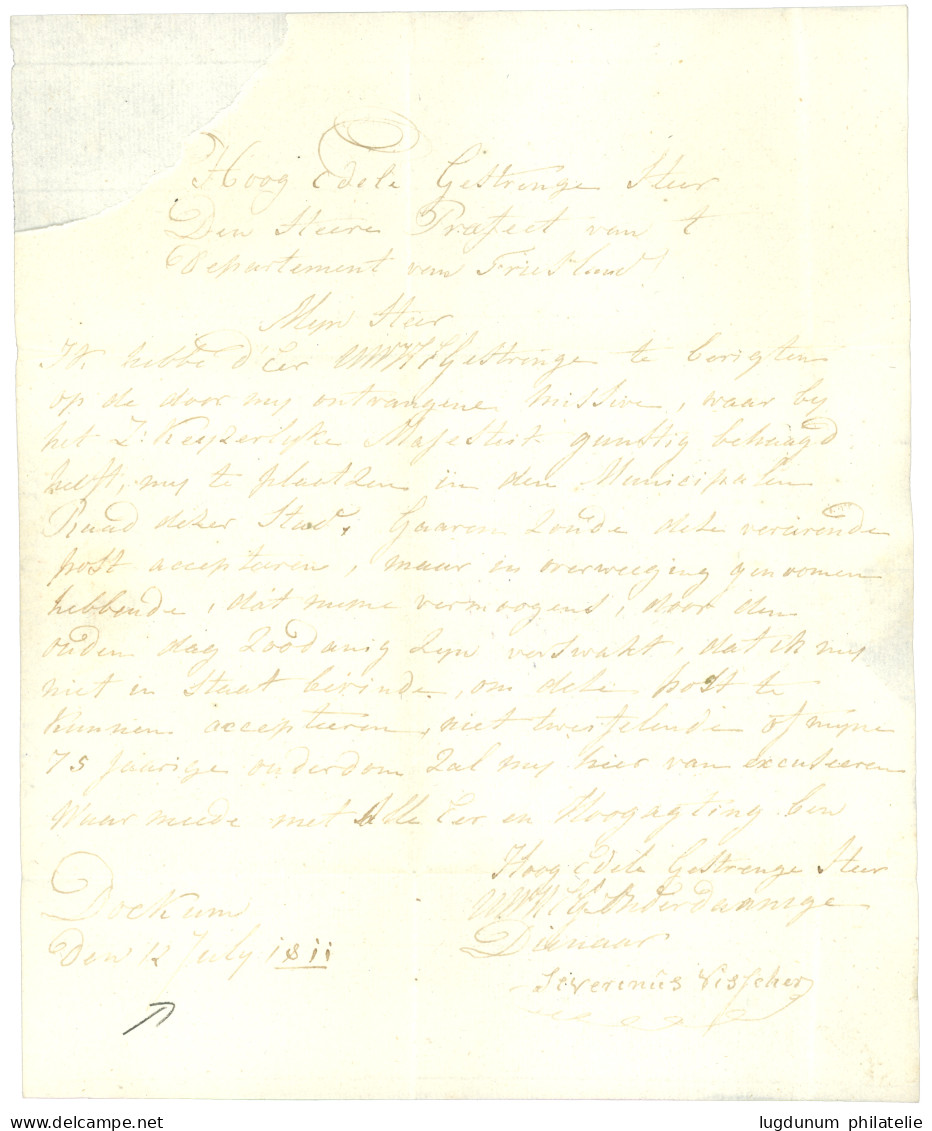 Hoog Edele Gestrenge Heer
Den Heere Præfect van t
Departement van Friesland
Mijn Heer
Ik hebbe d'Eer UWH:Gestrenge te berigten
op de door my ontvangene missive, waar by
het Z: Keyzerlyke Majesteit gunstig behaagd
heeft, my te plaatzen in den Municipalen
Raad dezer Stad, Gaaren zoude deze vereerende
post accepteeren, maar in overweeging genoomen
hebbende, dat myne vermoogens, door den
ouden dag zoodanig zyn verswakt, dat ik my
niet in staat bevinde, om deze post te
kunnen accepteeren, niet twyfelende of myne
75 jaarige ouderdom zal my hier van excuseeren
Waar meede met Alle Eer en Hoogagting ben
Hoog Edele Gestrenge Heer
Onderdaanige
Dienaar
Severinus Visscher
Dockum
Den 12 July 1811
lugdunum philatelie